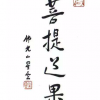 菩提道果
佛光山星雲